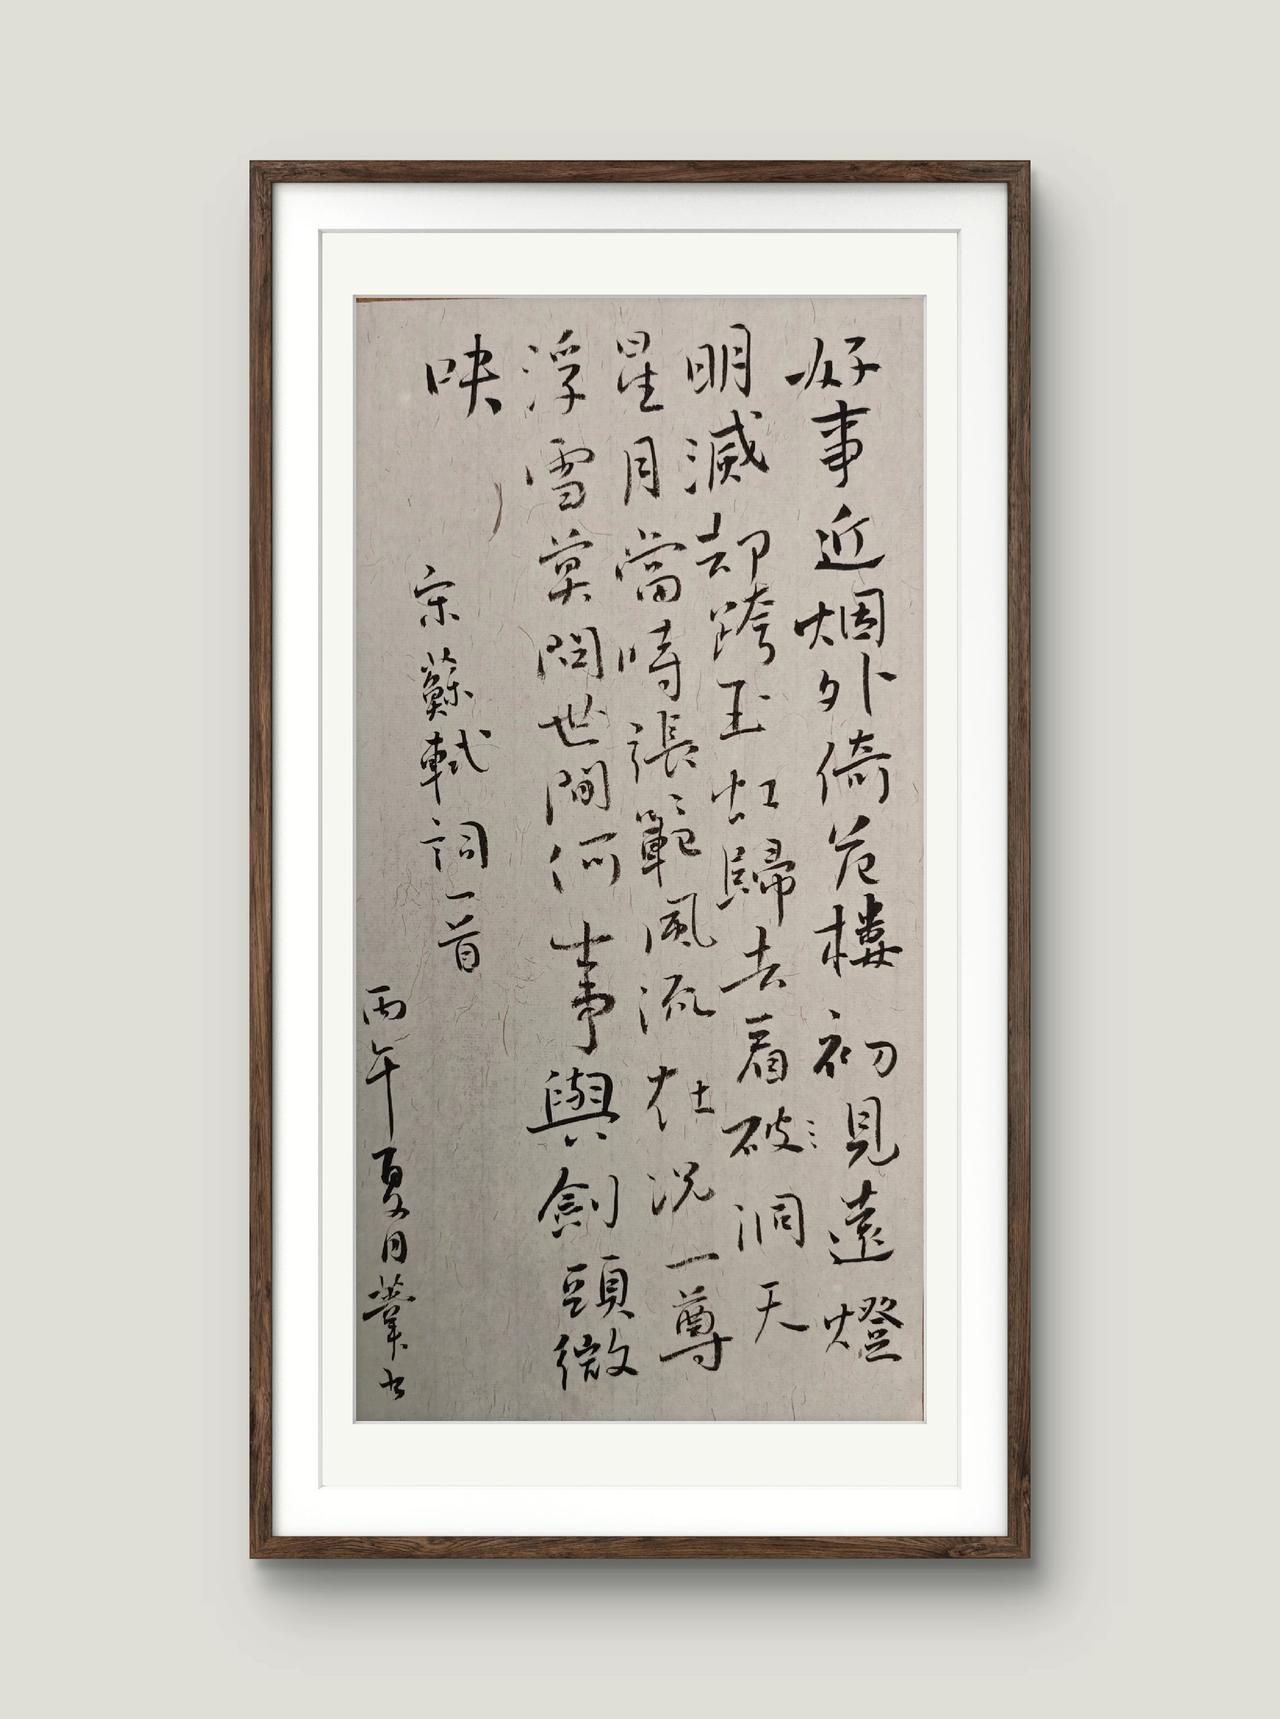 好事近烟外倚危樓初見遠燈
明滅却跨玉虹歸去看破洞天
星月當時張範風流在況一尊
浮雪莫問世間何事與劍頭微
吷
宋蘇軾詞一首
丙午夏月葦书